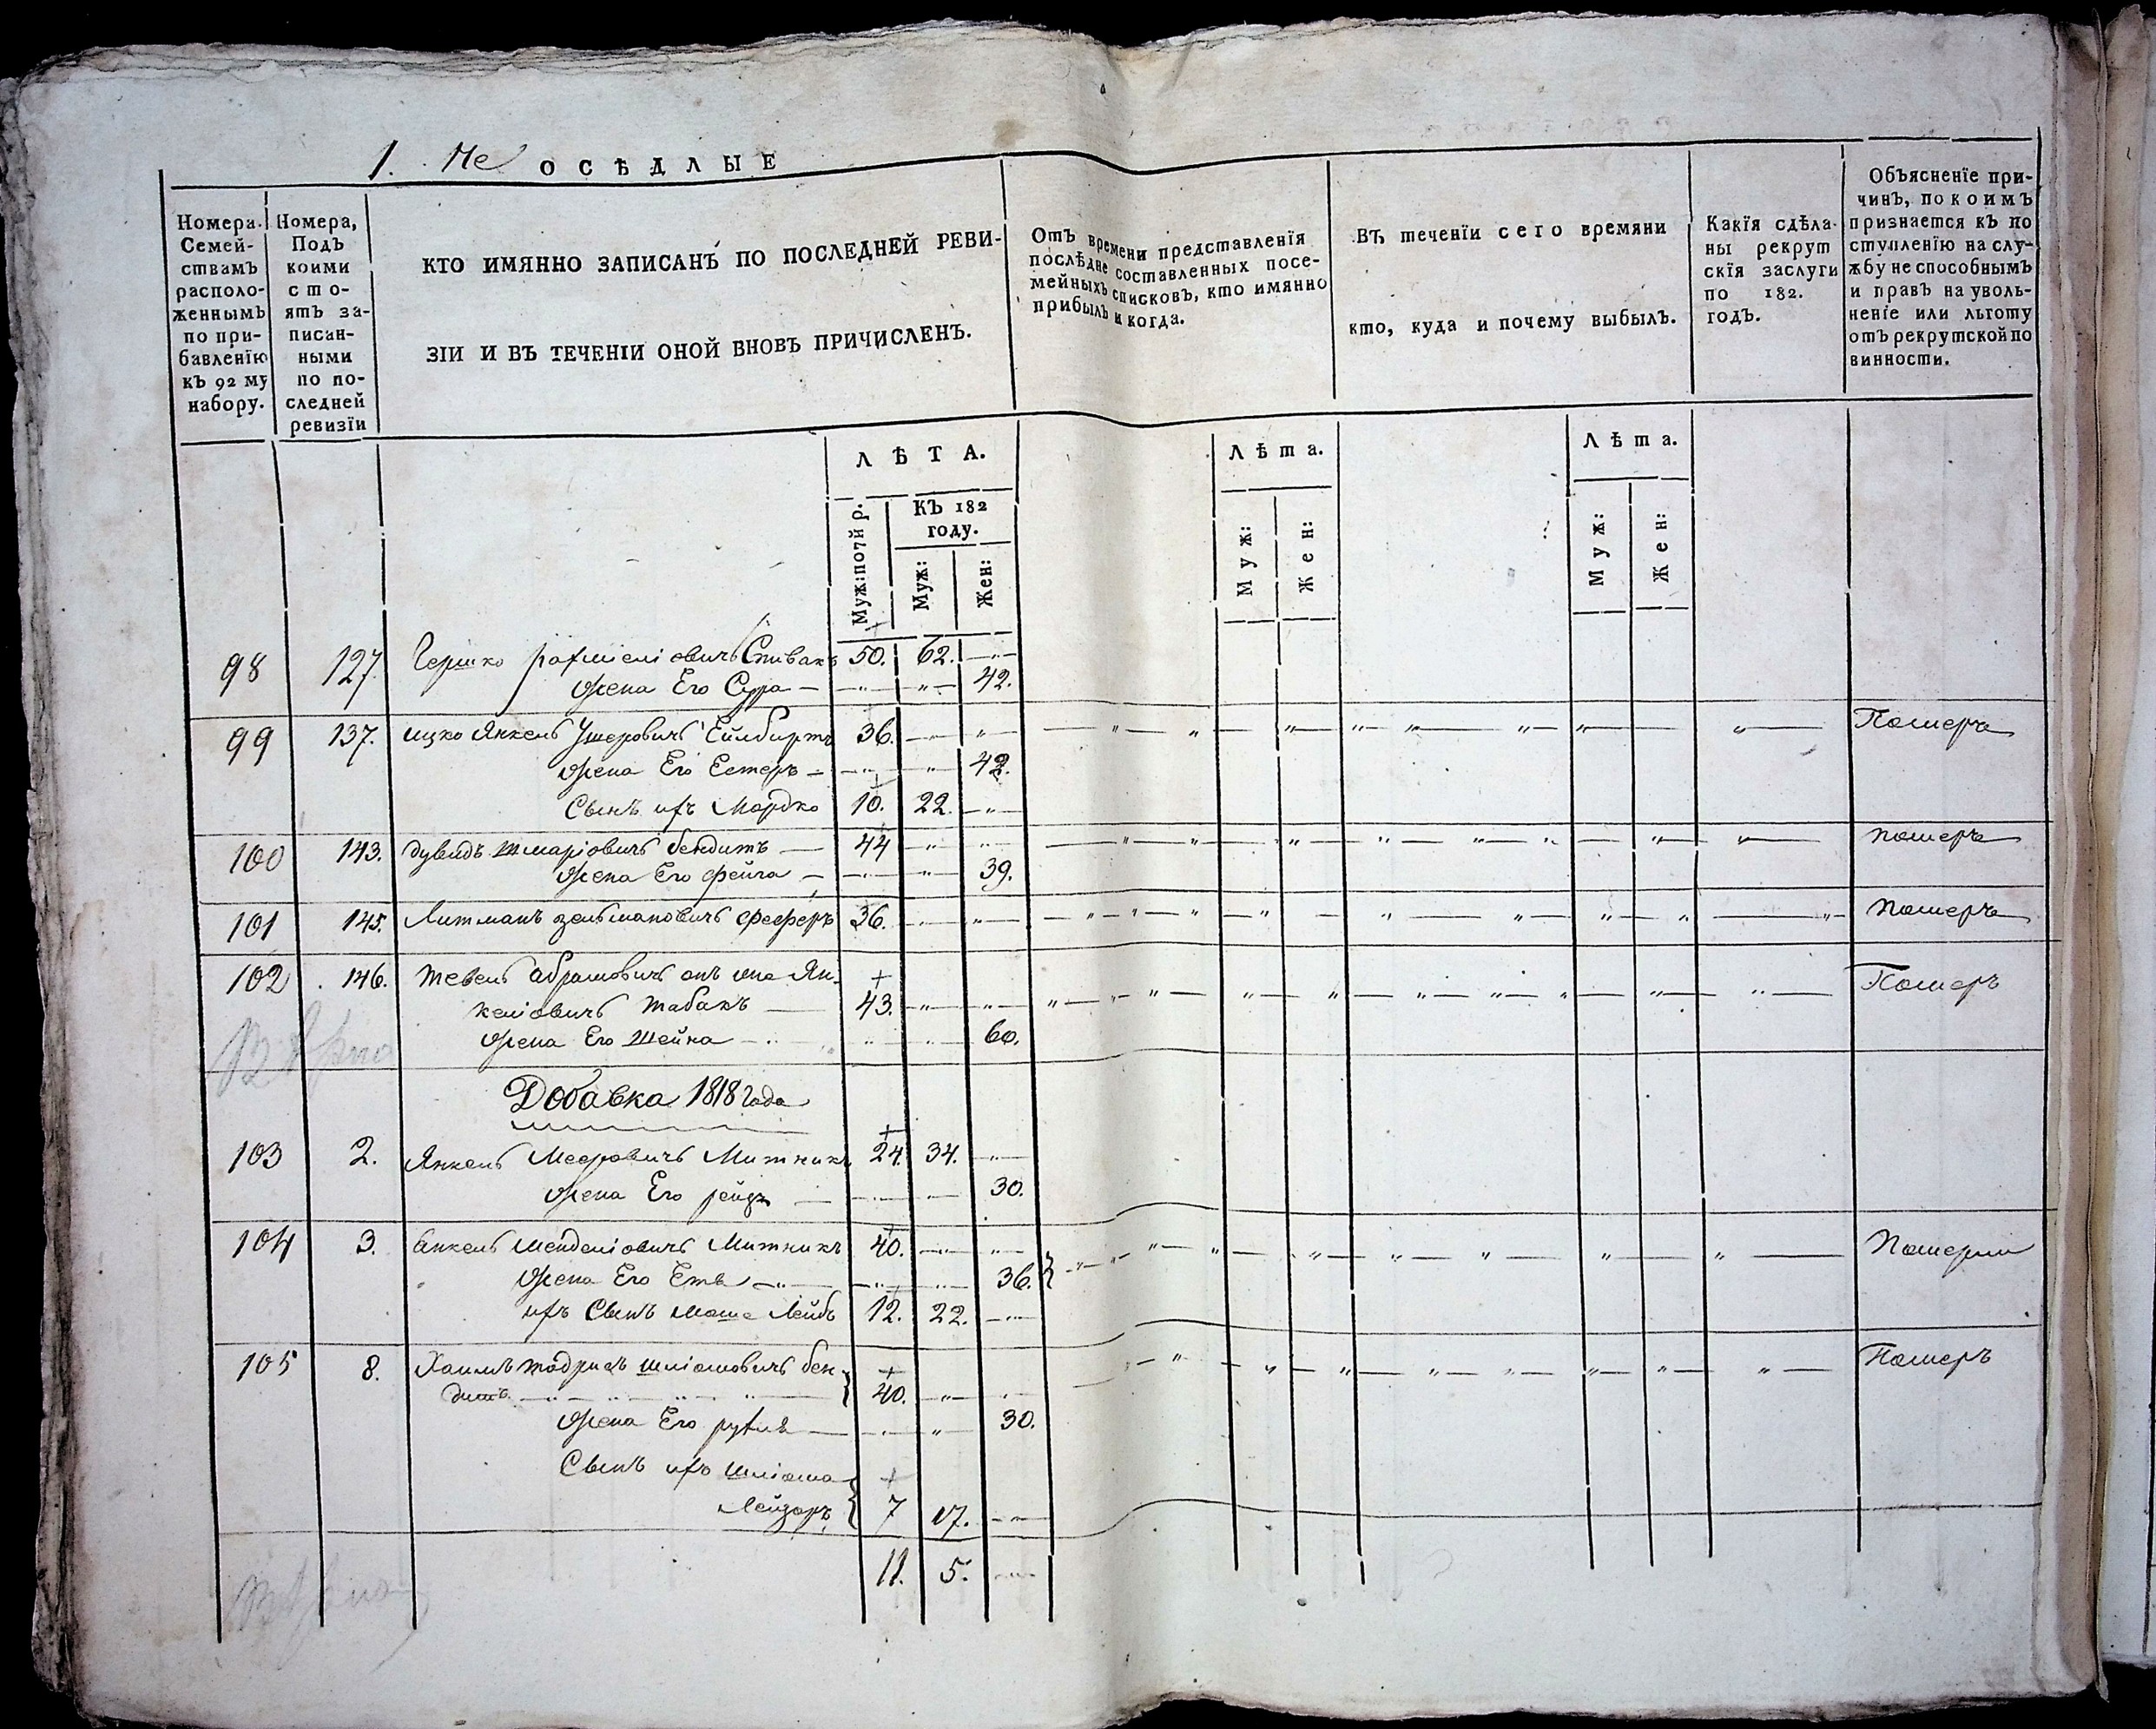 1. Не ОСѢДЛЫЕ
Номера Семействамъ
расположеннымъ
по прибавленїю
къ 92 му
набору.
Номера,
Подъ
коими
стоятъ
записанными
по последней
ревизїи
КТО ИМЯННО ЗАПИСАНЪ ПО ПОСЛЕДНЕЙ РЕВИ-
ЗІИ И ВЪ ТЕЧЕНІИ ОНОЙ ВНОВЬ ПРИЧИСЛЕНЪ.
Отъ времени представленїя
послѣдне составленныхъ посе-
мейныхъ списковъ, кто имянно
прибылъ и когда.
Въ теченїи сего времяни
кто, куда и почему выбылъ.
Какїя сдѣла-
ны рекрут
скїя заслуги
по 182.
годъ.
Объясненїе при-
чинъ, по коимъ
признается къ по
ступленїю на слу-
жбу не способнымъ
и правъ на уволь-
ненїе или льготу
отъ рекрутской по
винности.
ЛѢТА.
Муж: по 7й р.
КЪ 182
году.
Муж:
Жен:
Лѣта.
Муж:
Жен:
Лѣта.
Муж:
Жен:
98 127. Гершко Спивакъ 50. 62. —"—
жена Его Сура — —"— "— 42.
99 137. ицко Янкель Ушеровичъ 36. —"— "— Померъ
жена Его Естеръ — —"— " 42.
Сынъ ихъ Мордко 10. 22. —"—
100 143. дувидъ Шмаріовичъ бендитъ — 44 " " померъ
жена Его фейга — —"— "— 39.
101 145. Литманъ зельмановичъ фефферъ 36. —"— "— Померъ
102 146. тевель абрамовичъ онъ же Ян-
келіовичъ табакъ — 43. "— "— Померъ
жена Его Шейна — " " 60.
Вѣрно
Добавка 1818 года
103 2. Янкель Мееровичъ Митникъ 24. 34. —"—
жена Его рейзя — —"— — 30.
104 3. Янкель Менделіовичъ Митникъ 40. —"— "— Померли
жена Его Етя —"— —"— "— 36.
ихъ Сынъ Мошко Лейбъ 12. 22. —"—
105 8. Хаимъ тодрисъ шліомовичъ бен-
дитъ 40. "— "— Померъ
жена Его рухля — —"— " 30.
Сынъ ихъ Шліома
Лейзоръ 7 17. —"—
11. 5. —"—
Вѣрно